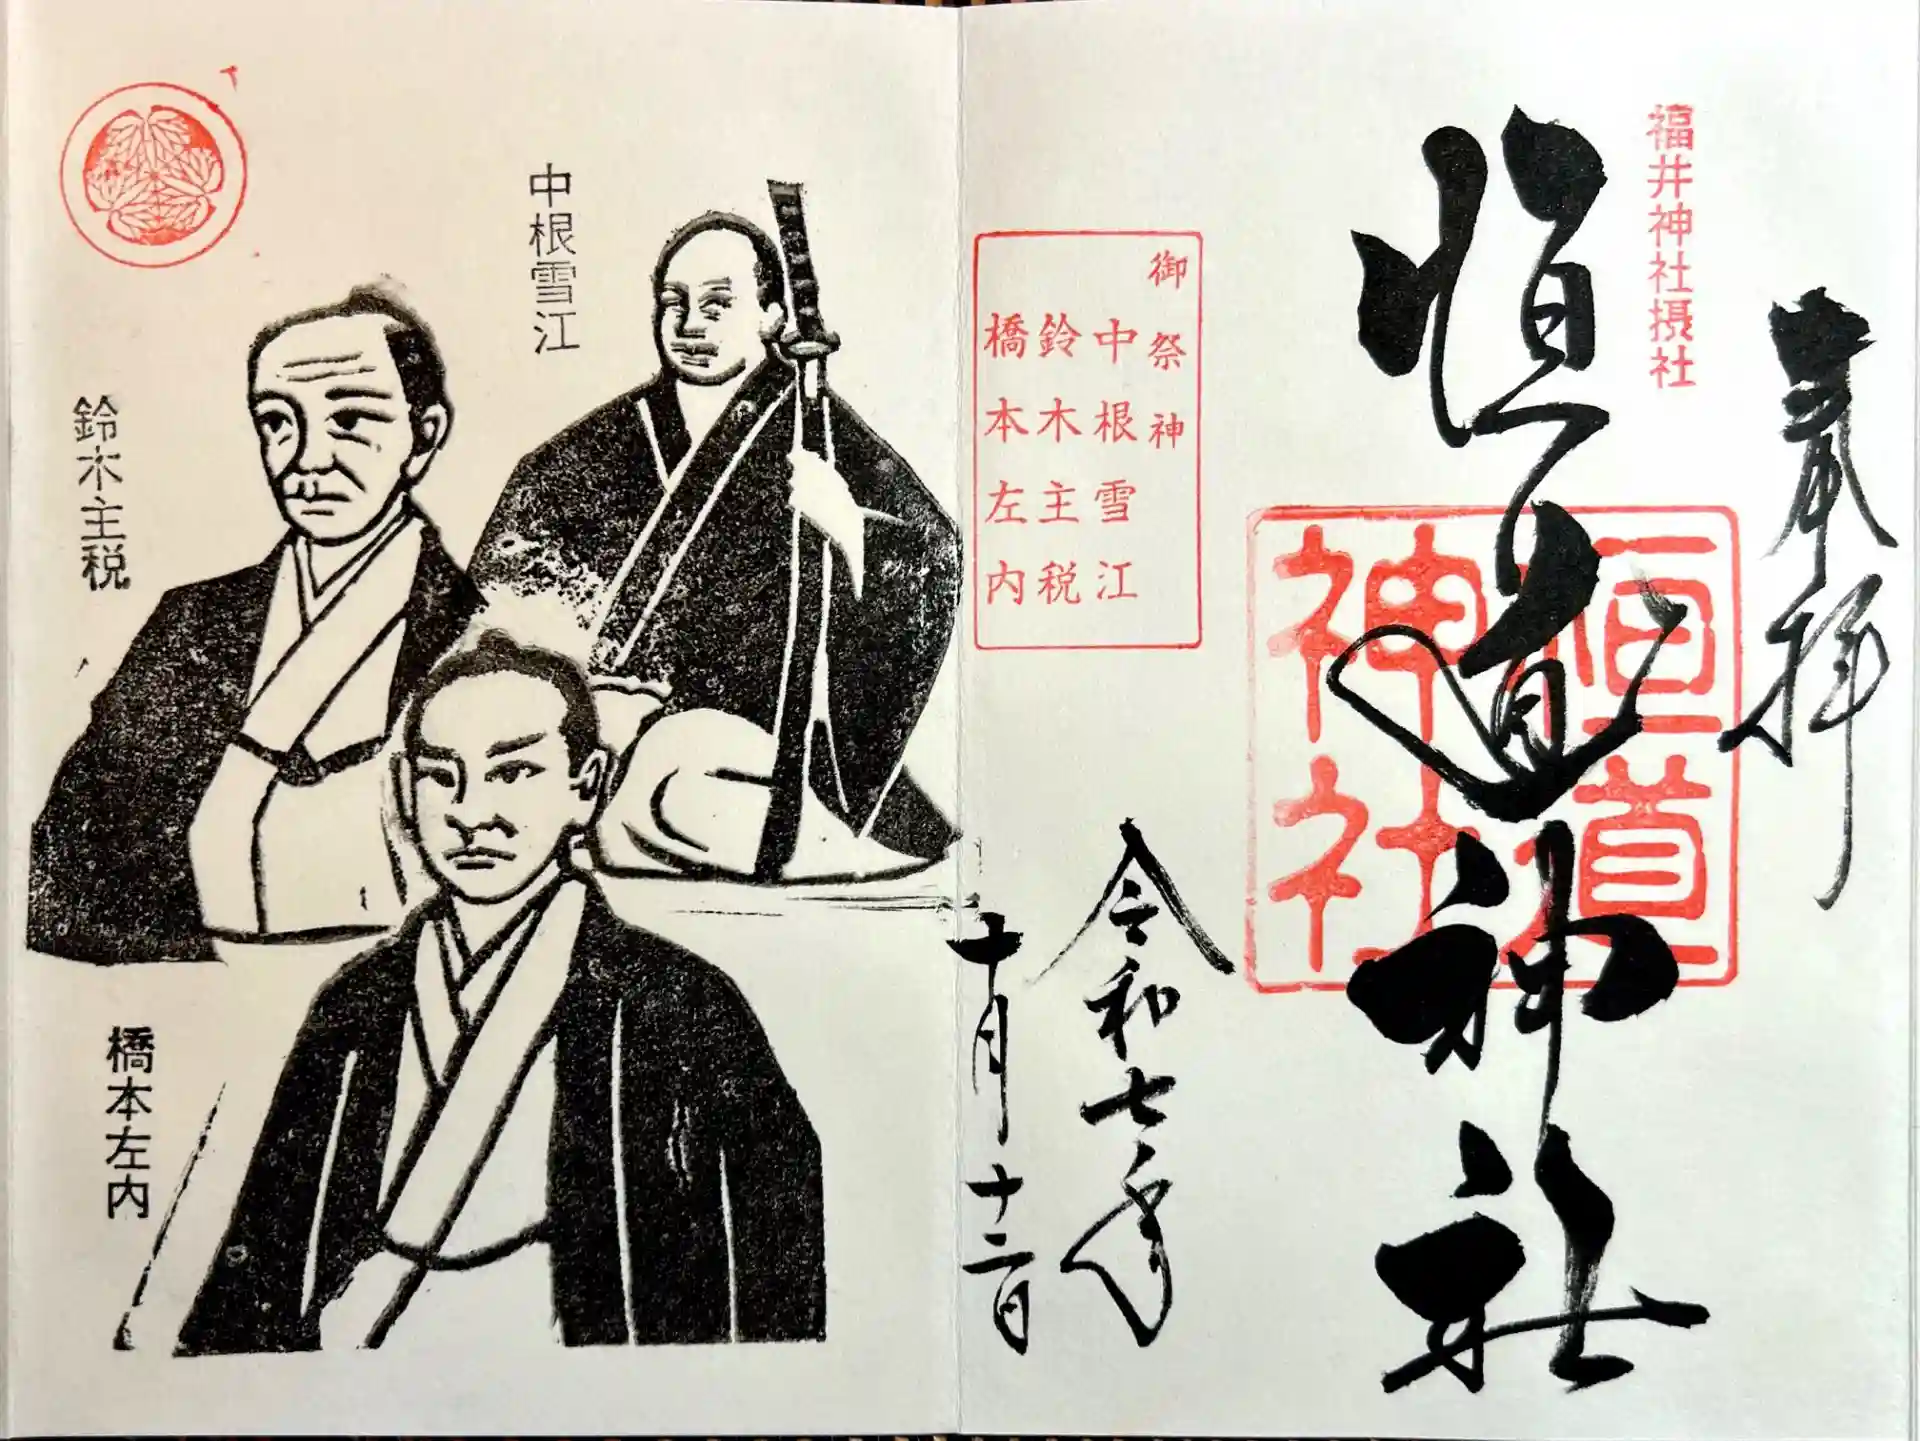 奉拝
福井神社摂社
恒道神社
恒道神社
御祭神
中根雪江
鈴木主税
橋本左内
令和七年
十月十二日
中根雪江
鈴木主税
橋本左内